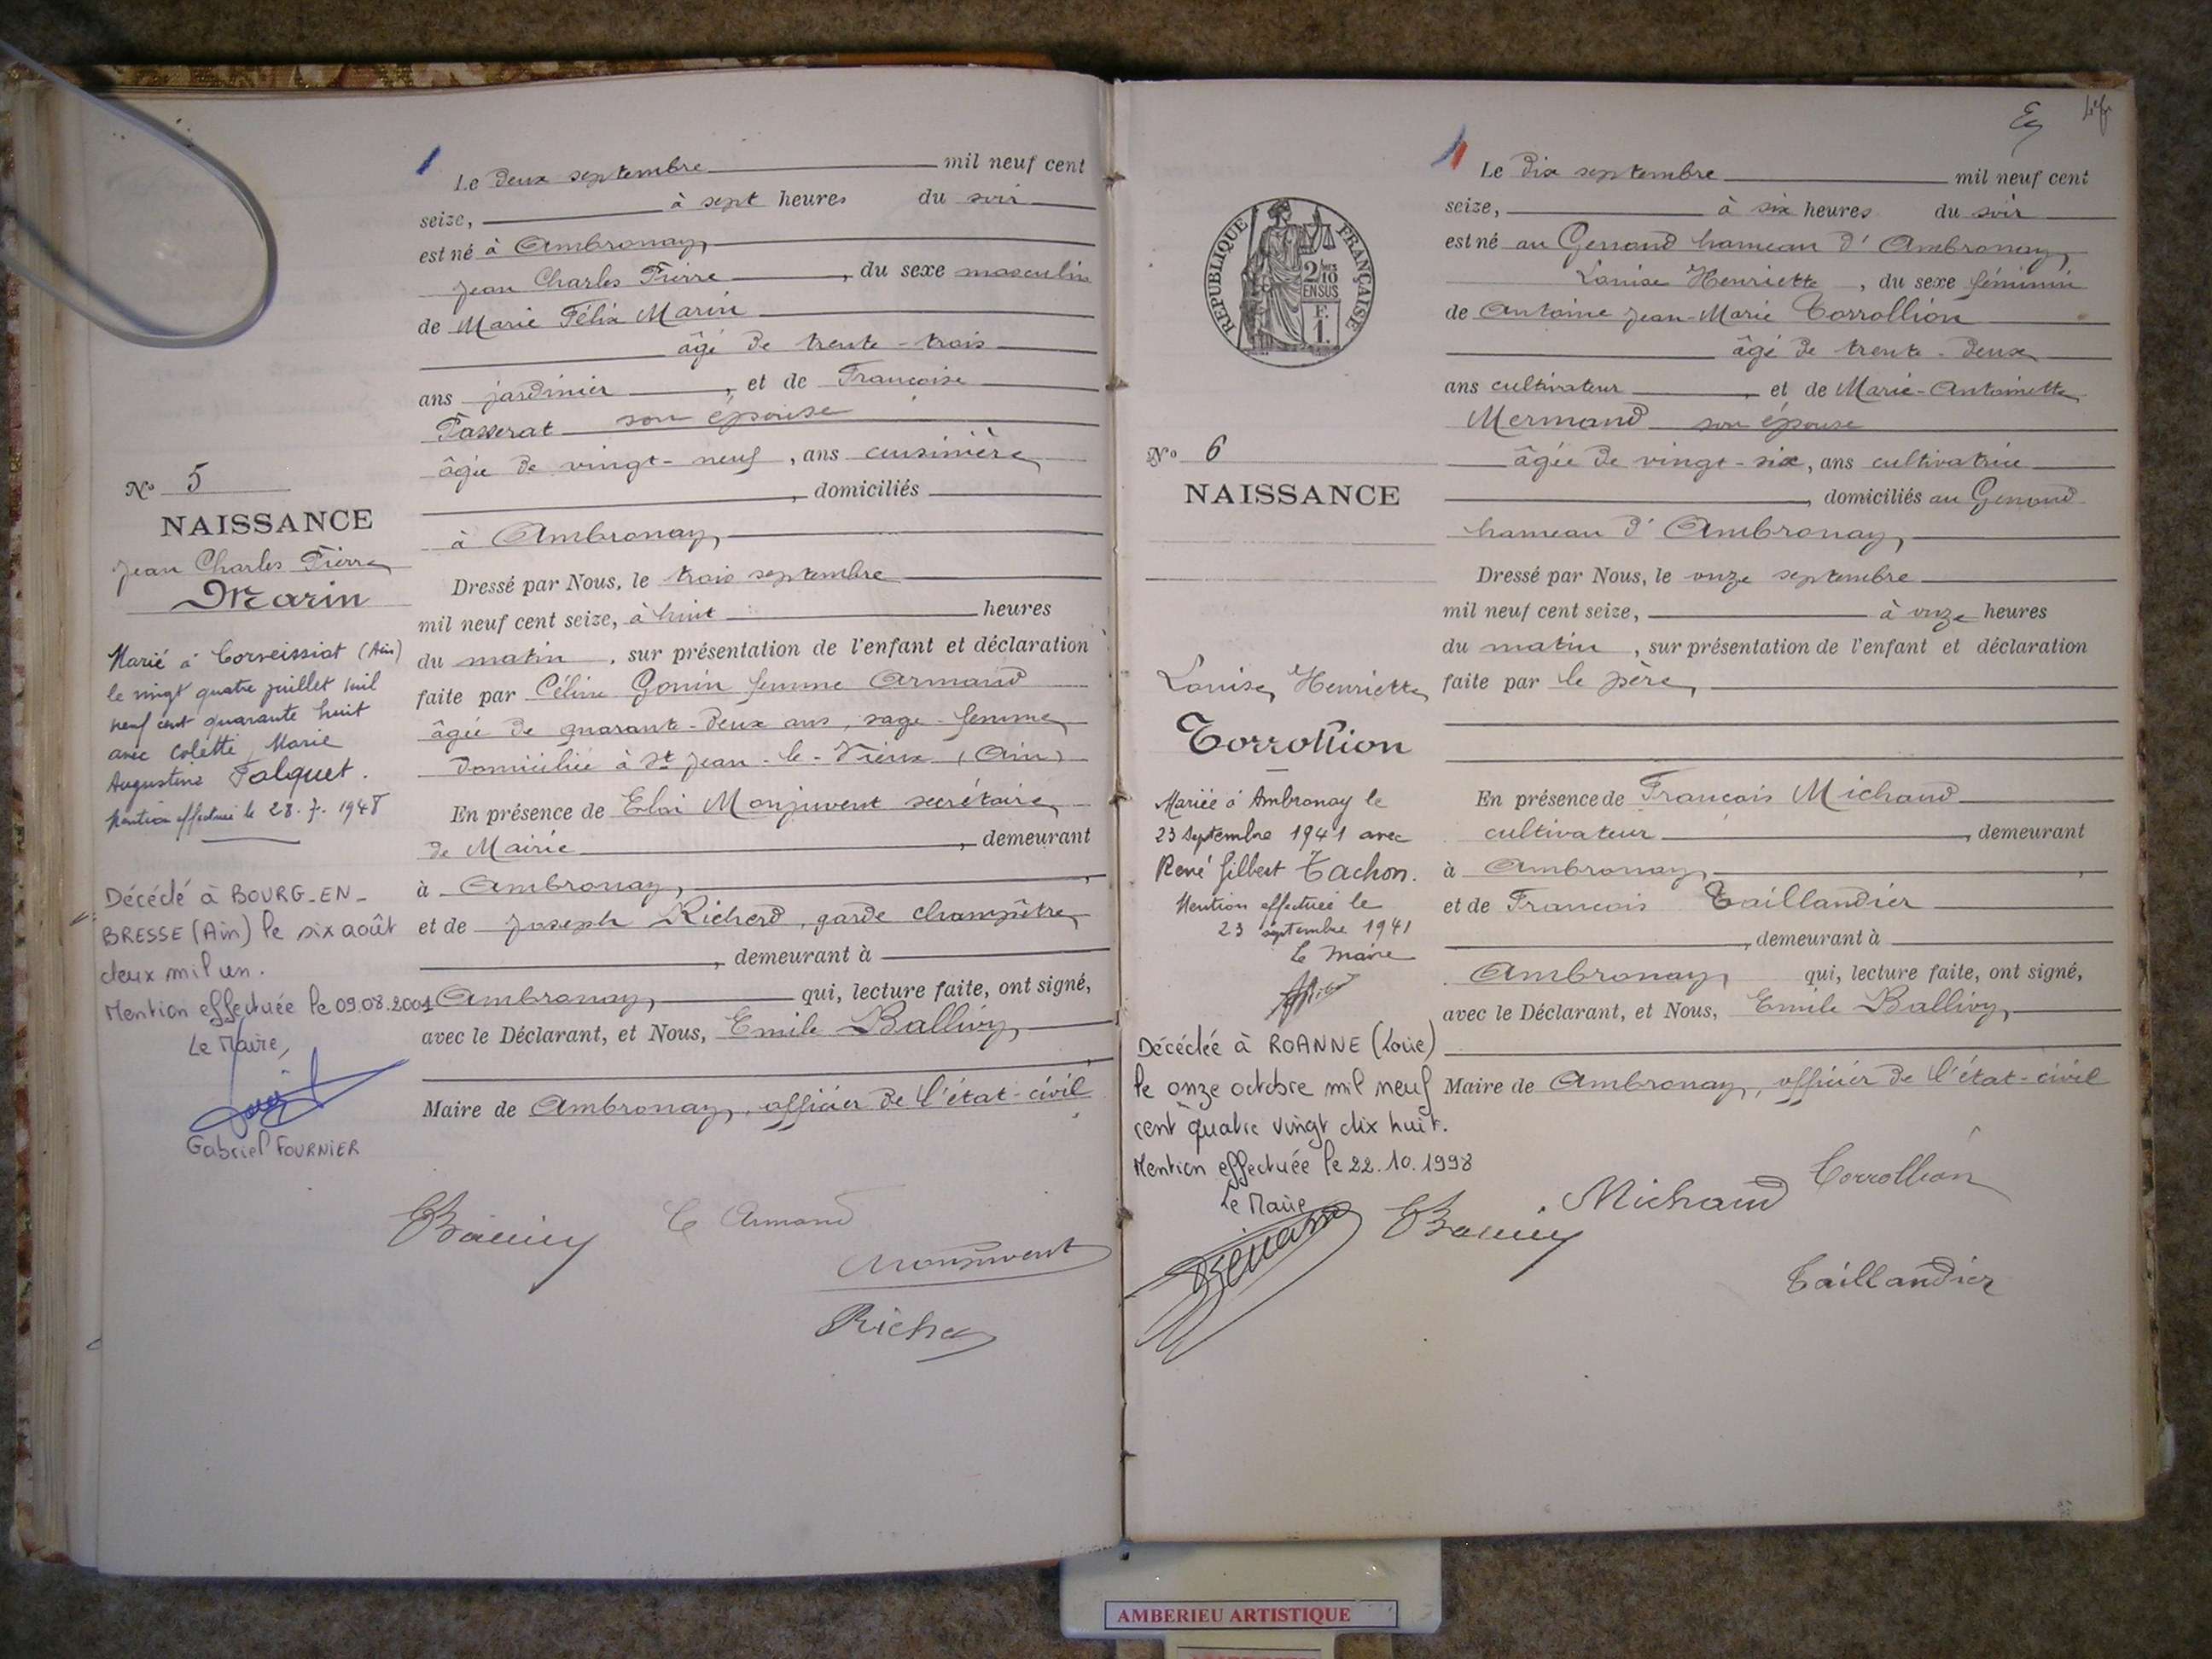 Le deux septembre mil neuf cent
seize, à sept heures du soir
est né à Ambronay,
Jean Charles Pierre, du sexe masculin
de Marie Félix Marin
âgé de trente-trois
ans jardinier, et de Françoise
Passerat son épouse
âgée de vingt-neuf, ans cuisinière
, domiciliés
à Ambronay,
Dressé par Nous, le trois septembre
mil neuf cent seize, à huit heures
du matin, sur présentation de l'enfant et déclaration
faite par Céline Gonin femme Armand
âgée de quarante-deux ans, sage-femme
domiciliée à St Jean-le-Vieux (Ain)
En présence de Eloi Monjuvent secrétaire
de Mairie, demeurant
à Ambronay,
et de Joseph Richerd, garde champêtre
, demeurant à
Ambronay, qui, lecture faite, ont signé,
avec le Déclarant, et Nous, Emile Ballivy,
Maire de Ambronay, officier de l'état-civil
C Armand
Monjuvent
Richer
No 5
NAISSANCE
Jean Charles Pierre
Marin
Marié à Corveissiat (Ain)
le vingt quatre juillet mil
neuf cent quarante huit
avec Colette, Marie
Augustine Falquet.
Mention effectuée le 28.7.1948
Décédé à BOURG-EN-
BRESSE (Ain) le six août
deux mil un.
Mention effectuée le 09.08.2001
Le Maire,
Gabriel FOURNIER
Eg
RÉPUBLIQUE FRANÇAISE
2/10
EN SUS
F.
1.
No 6
NAISSANCE
Louise Henriette
Corrollion
Mariée à Ambronay le
23 Septembre 1941 avec
René Gilbert Tachon.
Mention effectuée le
23 septembre 1941
Le Maire
Décédée à ROANNE (Loire)
le onze octobre mil neuf
cent quatre vingt dix huit.
Mention effectuée le 22.10.1998
Le Maire
Le dix septembre mil neuf cent
seize, à six heures du soir
est né au Genoud hameau d'Ambronay,
Louise Henriette, du sexe féminin
de Antoine Jean-Marie Corrollion
âgé de trente-deux
ans cultivateur, et de Marie-Antoinette
Mermand son épouse
âgée de vingt-six, ans cultivatrice
, domiciliés au Genoud
hameau d'Ambronay,
Dressé par Nous, le onze septembre
mil neuf cent seize, à onze heures
du matin, sur présentation de l'enfant et déclaration
faite par le père,
En présence de François Michaud
cultivateur, demeurant
à Ambronay,
et de François Taillandier
, demeurant à
Ambronay, qui, lecture faite, ont signé,
avec le Déclarant, et Nous, Emile Ballivy,
Maire de Ambronay, officier de l'état-civil
Corrollion
Michaud
Taillandier
AMBERIEU ARTISTIQUE